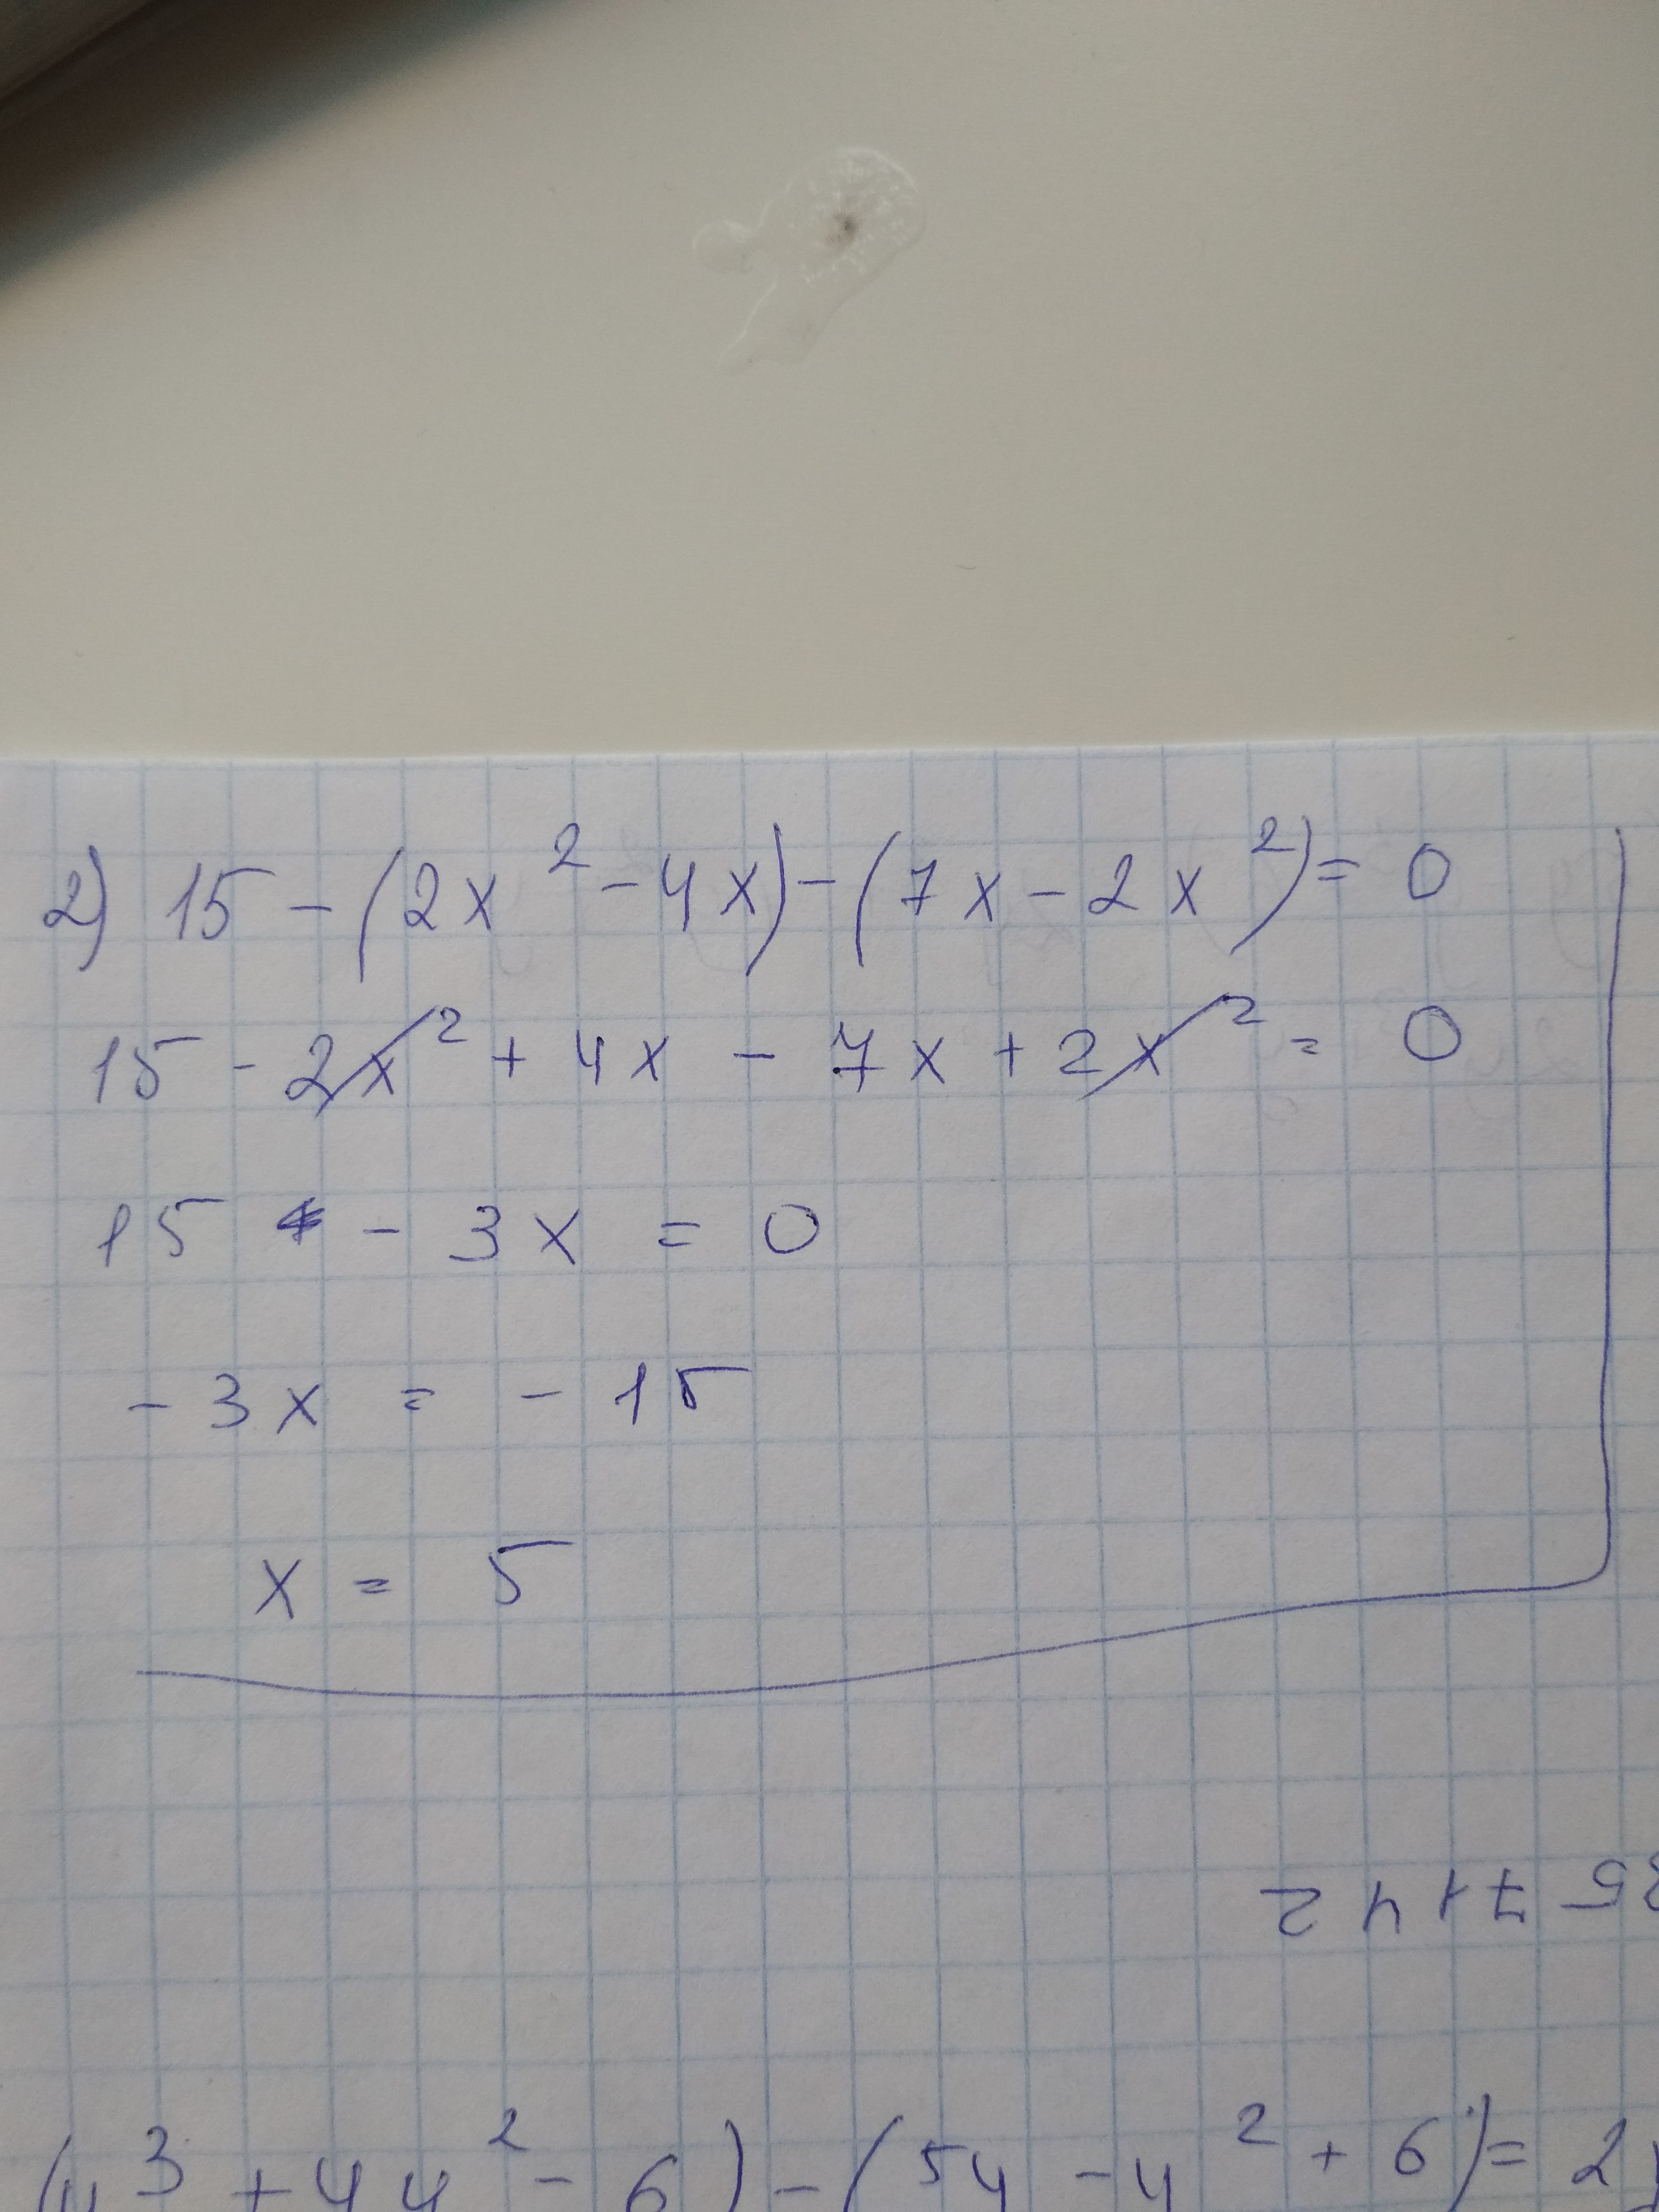 2) 15 - (2x² - 4x) - (7x - 2x²) = 0
15 - 2x² + 4x - 7x + 2x² = 0
15 - 3x = 0
-3x = -15
x = 5
5 7 1 4 2
3 + 4y² - 6) - (5y - y² + 6) = 2